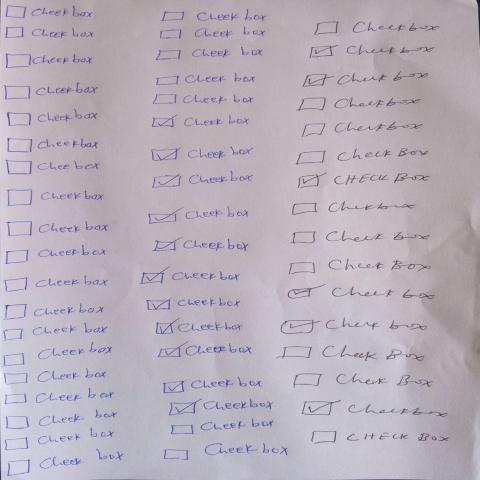 Cheekbox
Cheekbox
Cheekbox
Cheekbox
Cheekbox
Cheekbox
Chee box
Cheekbox
Cheekbox
Cheekbox
Cheekbox
Cheekbox
Cheek box
Cheek box
Cheek box
Cheek box
Cheek box
Cheek box
Cheek box
Cheek box
Cheek box
Cheek box
Cheek box
Cheek box
Cheek box
Cheek box
Cheek box
Cheek box
Cheek box
Cheek box
Cheek box
Cheekbox
Cheekbox
Cheek box
Cheekbox
Cheek box
Cheek box
Checkbox
Check box
Check box
Check box
Check box
Check Box
CHECK Box
Check box
Check box
Check Box
Check box
Check box
Check Box
Check Box
Checkbox
CHECK Box